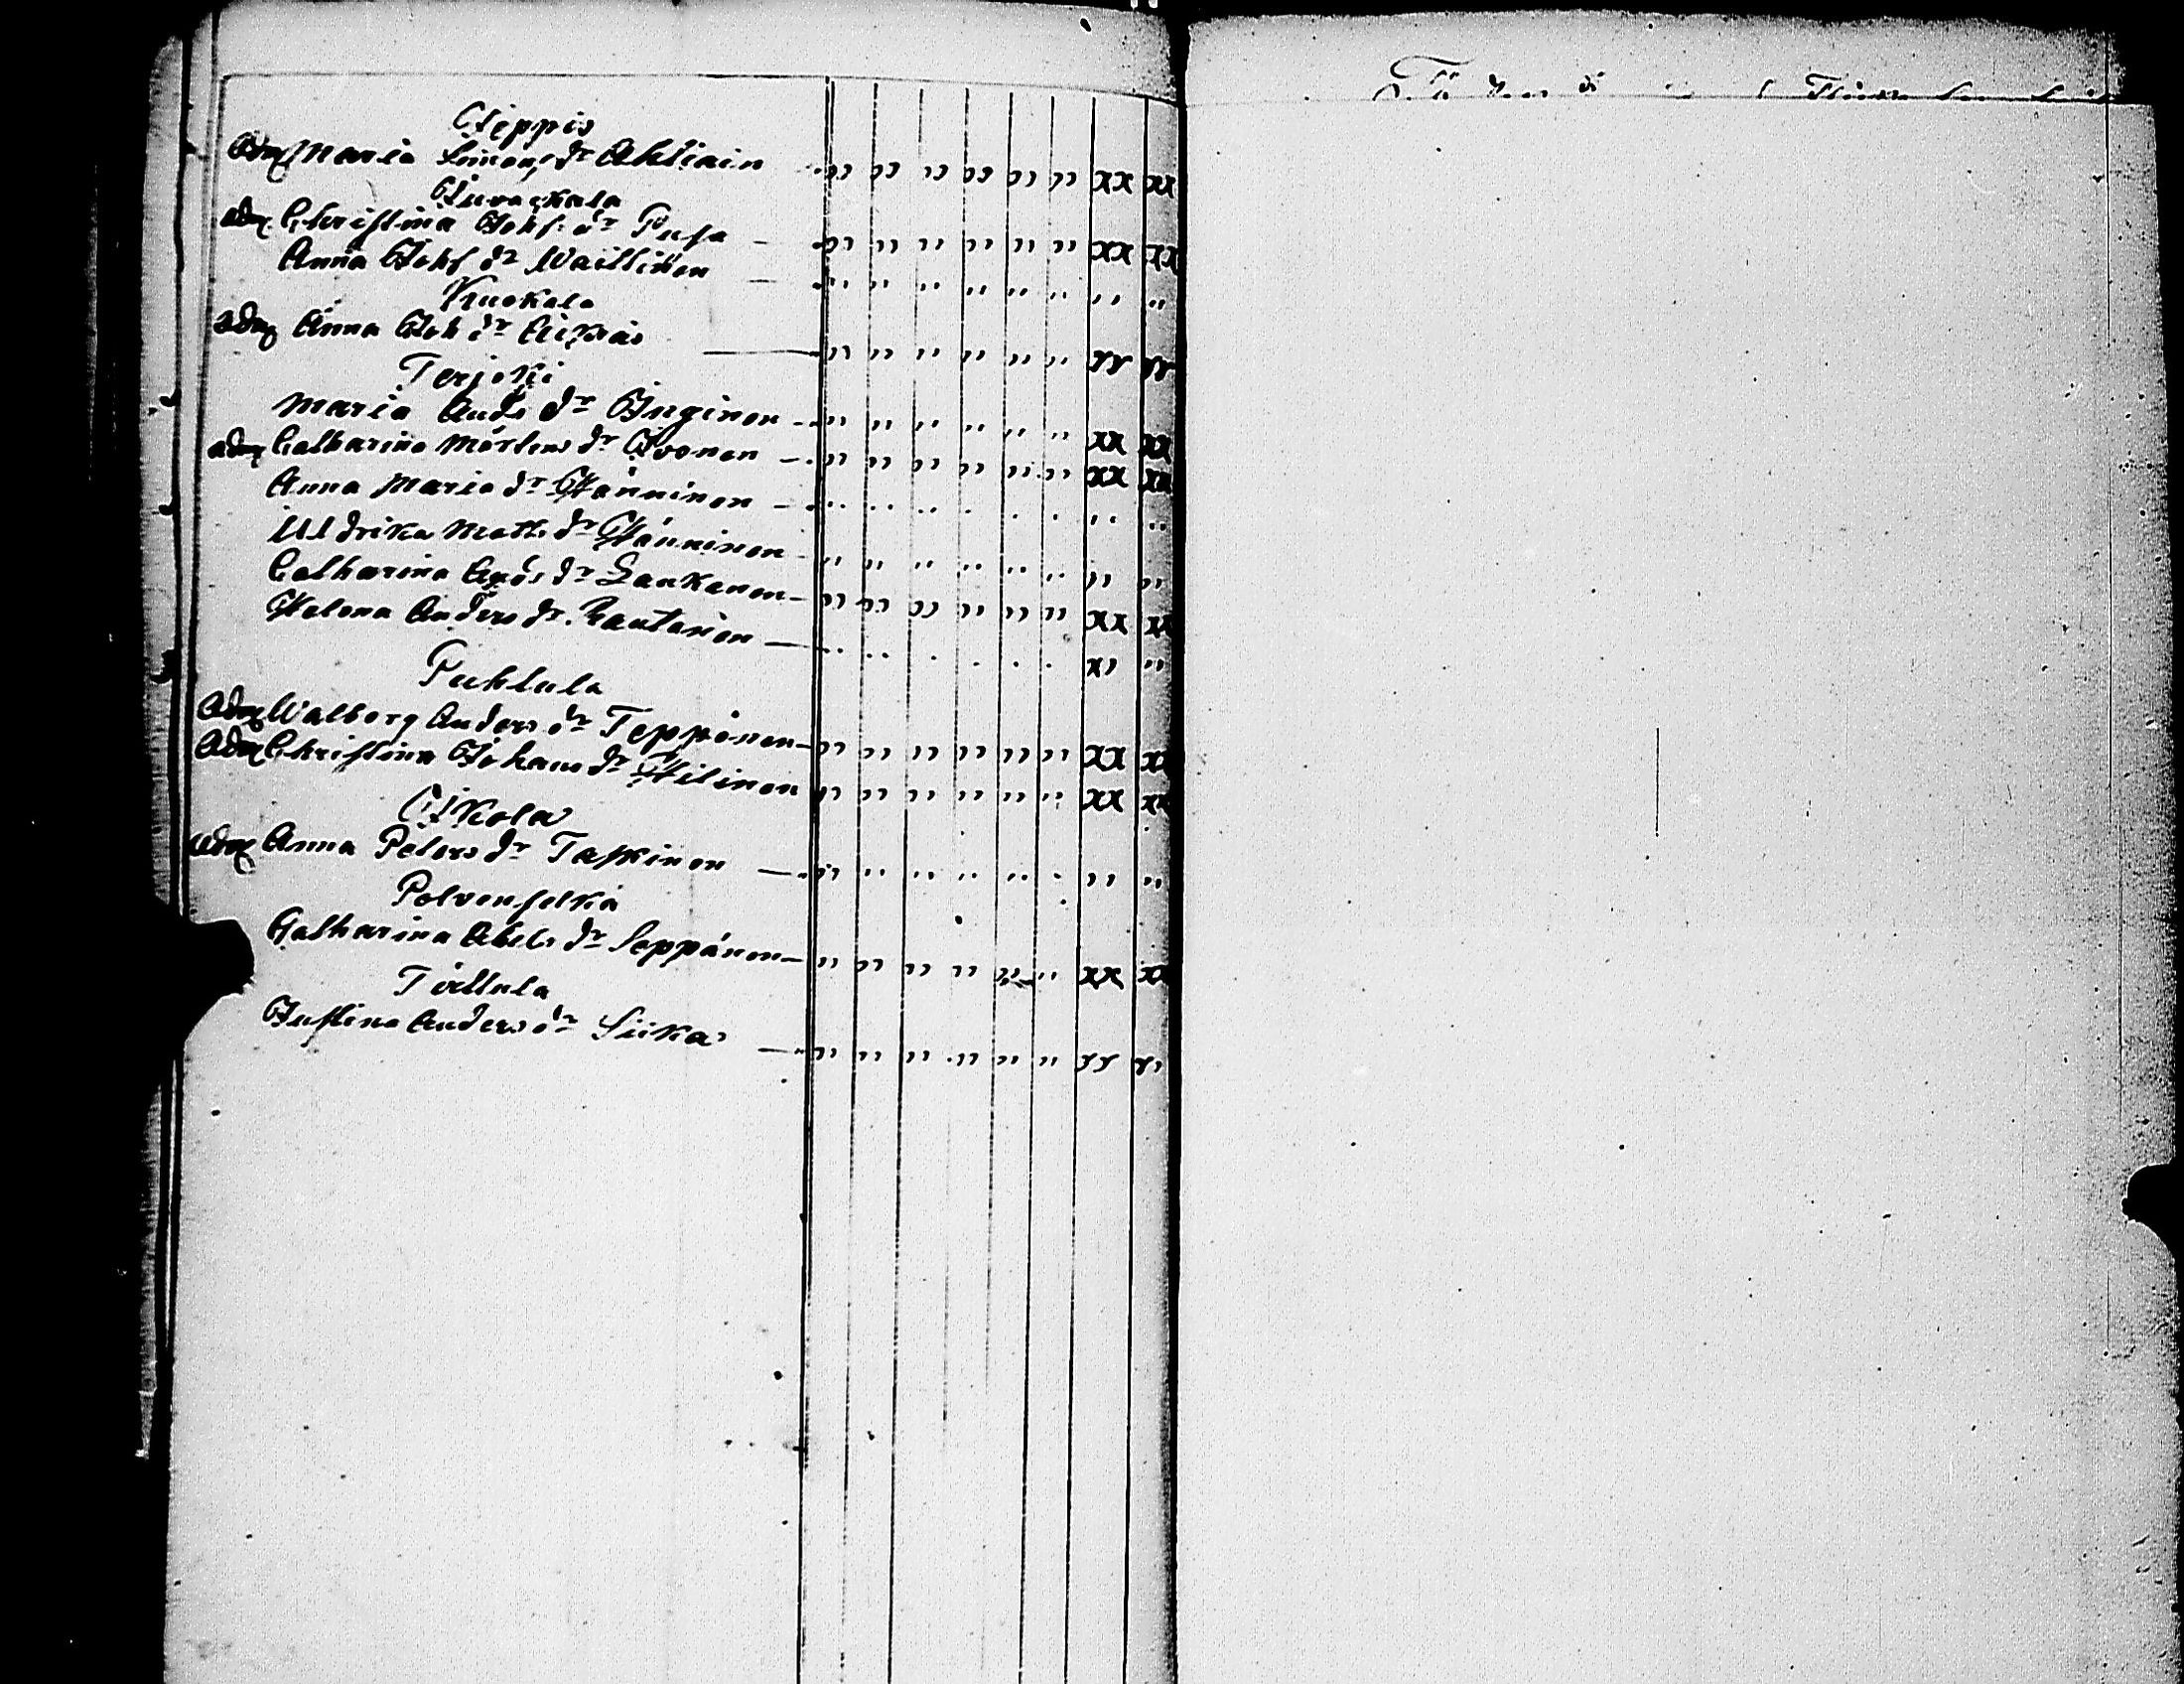 Jeppis
Adm Maria Simons dr Ahtiain " " " " " " xx xx
Juvaskala
adm Christina Johs dr Pusa — " " " " " " xx xx
Anna Johs dr Waittinen — " " " " " " " "
Kuokala
adm Anna Joh dr Äikäs — " " " " " " xx xx
Terjoki
Maria Ands dr Inginen - " " " " " " xx xx
adm Catharina Mårtens dr Ivonen - " " " " " " xx xx
Anna Maria dr Hänninen - " " " " " " " "
Uldrika Matts dr Hänninen " " " " " " " "
Catharina Ands dr Laukanen - " " " " " " xx xx
Helena Anders dr Rautanen — " " " " " " x" "
Puhtula
Adm Walborg Anders dr Teppänen - " " " " " " xx xx
Adm Christina Johans dr Hilinen " " " " " " xx xx
Ijkola
adm Anna Peters dr Taskinen — " " " " " " " "
Polvenselkä
Catharina Abels dr Seppänen - " " " " " " xx xx
Tirttula
Justina Anders dr Siika — " " " " " " xx x"